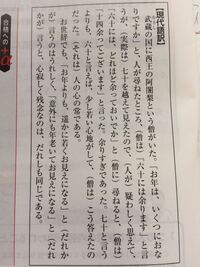 【現代語訳】
武蔵の国に西王の阿闍梨という僧がいた。「お年は、いくつにおな
りですか」と、人が尋ねたところ、(僧は)「六十には余ります」と言
うが、(実際は)七十を越えて見えたので、(人が)疑わしく思えて、
「六十にはどれほど余っておいでか」と(僧に)尋ねると、(僧は)
「十四余ってございます」と言った。余りすぎであろう。七十と言う
よりも、六十と言えば、少し若い心地がして、(僧は)こう答えたの
だった。(それは)人の心の常である。
お世辞でも、「お年よりも、遥かに若くお見えになる」と(だれか
が)言うのはうれしく、「意外にも年老いてお見えになる」と(だれ
かが)言うと心寂しく残念なのは、だれしも同じである。
合格への
+α